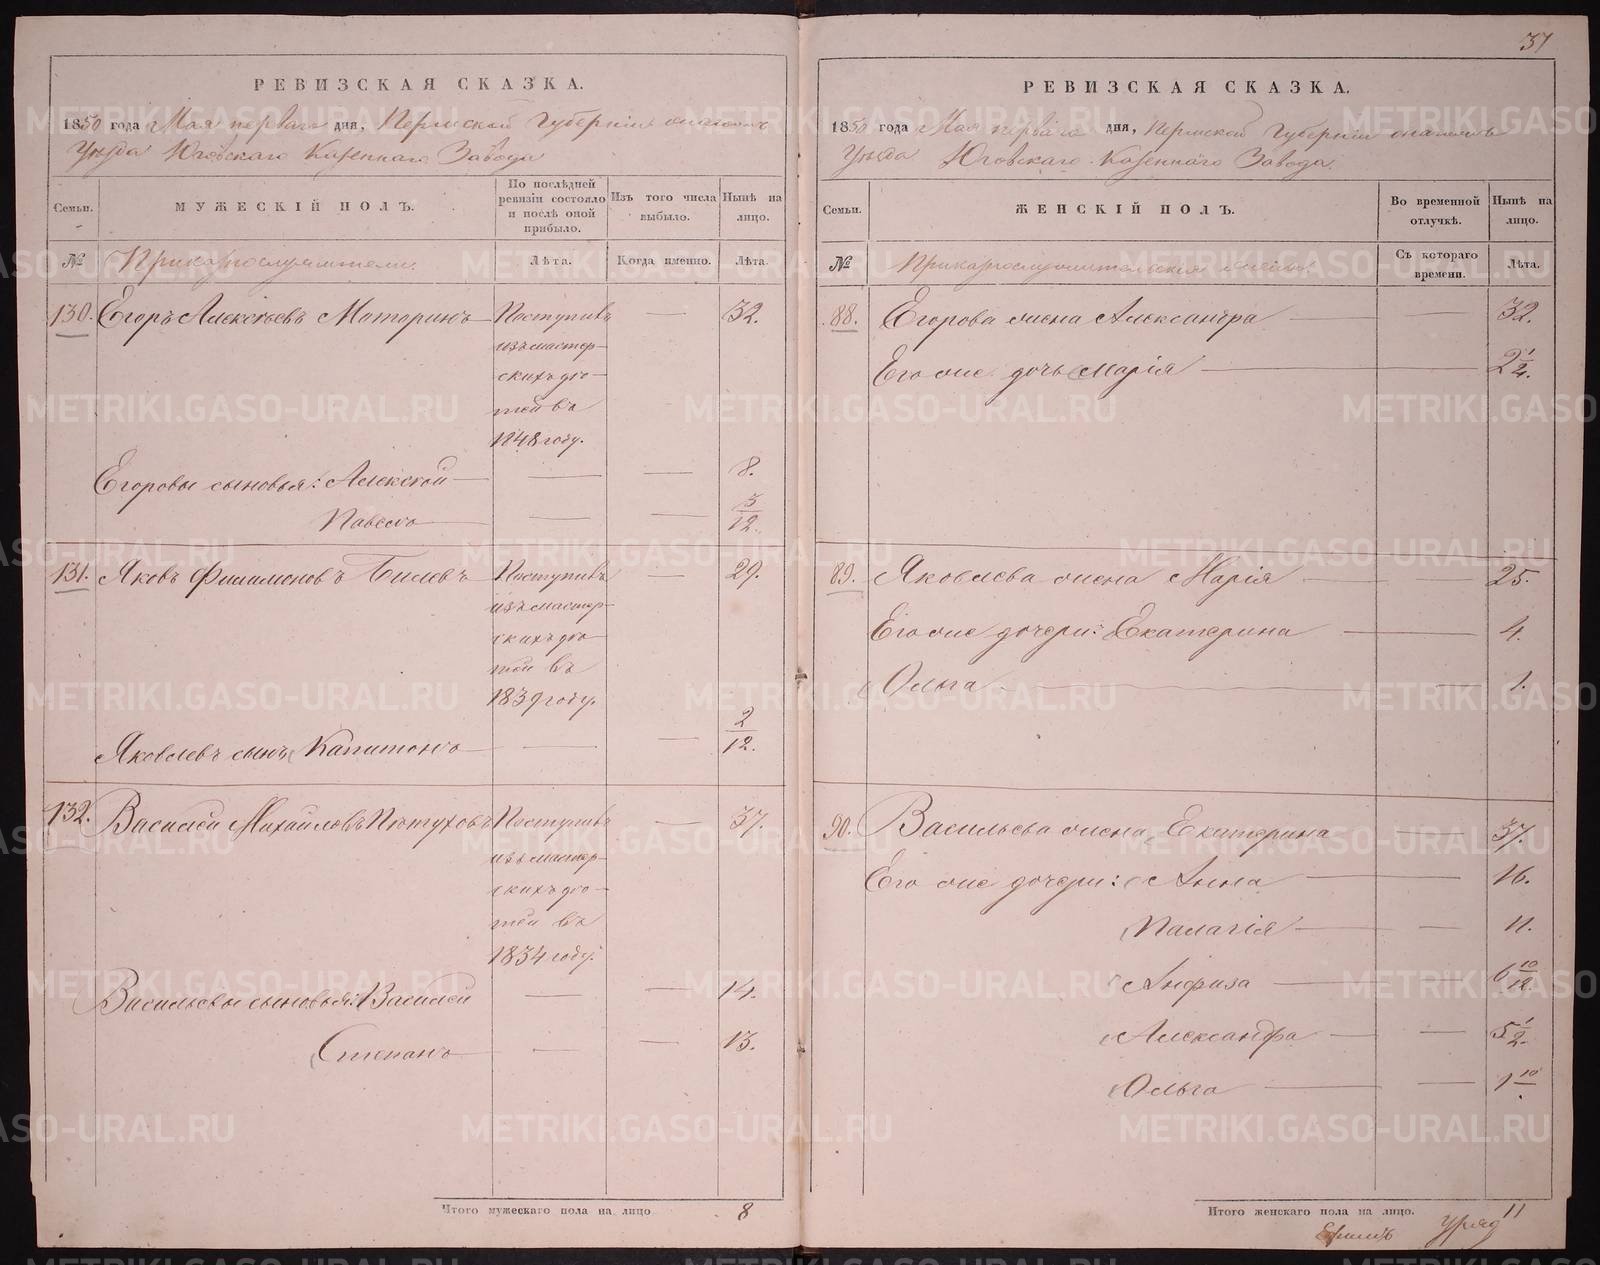 РЕВИЗСКАЯ СКАЗКА.
1850 года Мая перваго дня, Пермской Губерніи
Уѣзда Юговскаго Казеннаго Завода
Семьи.
МУЖЕСКІЙ ПОЛЪ.
По послѣдней ревизіи состояло и послѣ оной прибыло.
Изъ того числа выбыло.
Нынѣ на лицо.
№
Приказнослужители.
Лѣта.
Когда именно.
Лѣта.
130. Егоръ Алексѣевъ Моторинъ Поступилъ — 32.
изъ мастер-
скихъ дѣ-
тей въ
1848 году.
Егоровы сыновья: Алексѣй — — 8.
Павелъ — — 3/12.
131. Яковъ Филимоновъ Поступилъ — 29.
изъ мастер-
скихъ дѣ-
тей въ
1839 году.
Яковлевъ сынъ Капитонъ — — 2/12.
132. Василей Михайловъ Пѣтуховъ Поступилъ — 37.
изъ мастер-
скихъ дѣ-
тей въ
1834 году.
Васильевы сыновья: Василей — — 14.
Степанъ — — 13.
Итого мужескаго пола на лицо 8
37
РЕВИЗСКАЯ СКАЗКА.
1850 года Мая перваго дня, Пермской Губерніи
Уѣзда Юговскаго Казеннаго Завода.
Семьи.
ЖЕНСКІЙ ПОЛЪ.
Во временной отлучкѣ.
Нынѣ на лицо.
№
Приказнослужительскія жены.
Съ котораго времени.
Лѣта.
88. Егорова жена Александра — — 32.
Его же дочь Марія — — 2 1/4.
89. Яковлева жена Марія — — 25.
Его же дочери: Екатерина — — 4.
Ольга — — 1.
90. Васильева жена Екатерина — 37.
Его же дочери: Анна — — 16.
Палагія — — 11.
Анфиза — — 6 10/12.
Александра — — 5 1/2.
Ольга — — 1 10
Итого женскаго пола на лицо. 11
METRIKI.GASO-URAL.RU